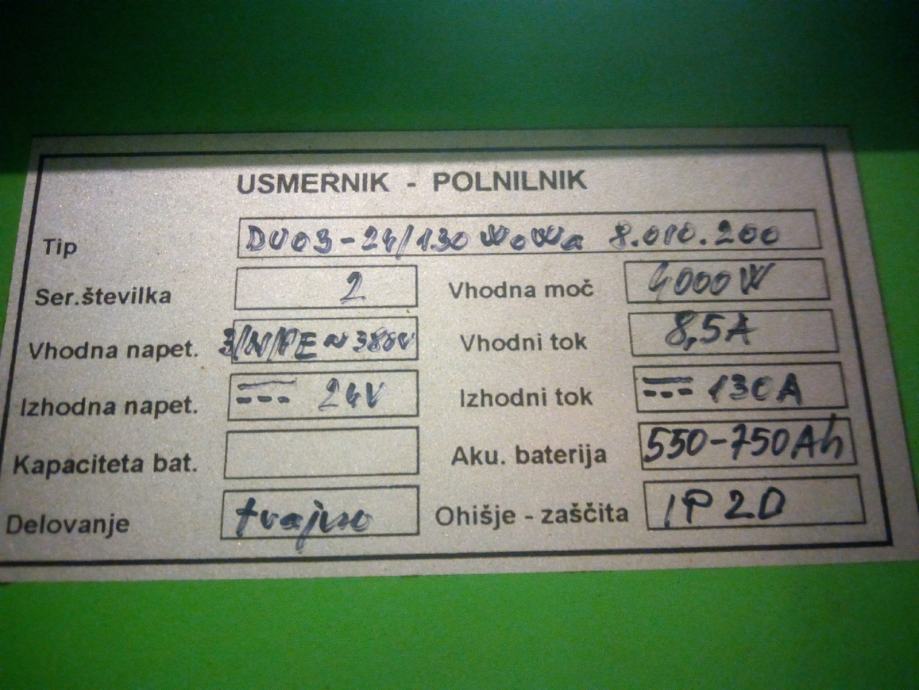 USMERNIK - POLNILNIK
Tip DV03-24/130 WoWa 8.010.200
Ser.številka 2 Vhodna moč 4000W
Vhodna napet. 3/N/PE ~ 380V Vhodni tok 8,5A
Izhodna napet. 24V Izhodni tok 130A
Kapaciteta bat. Aku. baterija 550-750Ah
Delovanje trajno Ohišje - zaščita IP20